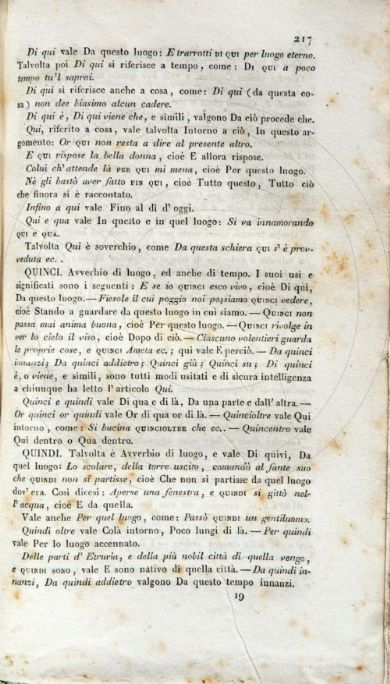 217
Di qui vale Da questo luogo: E trarrotti DI QUI per luogo eterno.
Talvolta poi Di qui si riferisce a tempo, come: DI QUI a poco
tempo tu'l saprai.
Di qui si riferisce anche a cosa, come: Di qui (da questa co-
sa) non dee biasimo alcun cadere.
Di qui è, Di qui viene che, e simili, valgono Da ciò procede che.
Qui, riferito a cosa, vale talvolta Intorno a ciò, In questo ar-
gomento: Or QUI non resta a dire al presente altro.
E QUI rispose la bella donna, cioè E allora rispose.
Colui ch'attende là PER QUI mi mena, cioè Per questo luogo.
Nè gli bastò aver fatto FIN QUI, cioè Tutto questo, Tutto ciò
che finora si è raccontato.
Infino a qui vale Fino al dì d'oggi.
Qui e qua vale In questo e in quel luogo: Si va innamorando
QUI E QUA.
Talvolta Qui è soverchio, come Da questa schiera QUI s'è prov-
veduta ec. .
QUINCI. Avverbio di luogo, ed anche di tempo. I suoi usi e
significati sono i seguenti: E se io QUINCI esco vivo, cioè Di qui,
Da questo luogo. — Fiesole il cui poggio noi possiamo QUINCI vedere,
cioè Stando a guardare da questo luogo in cui siamo. — QUINCI non
passa mai anima buona, cioè Per questo luogo. — QUINCI rivolge in
ver lo cielo il viso, cioè Dopo di ciò. — Ciascuno volentieri guarda
le proprie cose, e QUINCI Ameta ec.; qui vale E perciò. — Da quinci
innanzi; Da quinci addietro; Quinci giù; Quinci su; Di quinci
è, o viene, e simili, sono tutti modi usitati e di sicura intelligenza
a chiunque ha letto l'articolo Qui.
Quinci e quindi vale Di qua e di là, Da una parte e dall'altra. —
Or quinci or quindi vale Or di qua or di là. — Quincioltre vale Qui
intorno, come: Si bucina QUINCIOLTRE che ec.. — Quincentro vale
Qui dentro o Qua dentro.
QUINDI. Talvolta è Avverbio di luogo, e vale Di quivi, Da
quel luogo: Lo scolare, della torre uscito, comandò al fante suo
che QUINDI non si partisse, cioè Che non si partisse da quel luogo
dov'era. Così dicesi: Aperse una fenestra, e QUINDI si gittò nel-
l'acqua, cioè E da quella.
Vale anche Per quel luogo, come: Passò QUINDI un gentiluomo.
Quindi oltre vale Colà intorno, Poco lungi di là. — Per quindi
vale Per lo luogo accennato.
Delle parti d'Etruria, e della più nobil città di quella vengo,
e QUINDI SONO, vale E sono nativo di quella città. — Da quindi in-
nanzi, Da quindi addietro valgono Da questo tempo innanzi.
19